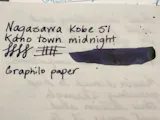 Nagasawa Kobe 51
Kano town midnight
Graphilo paper